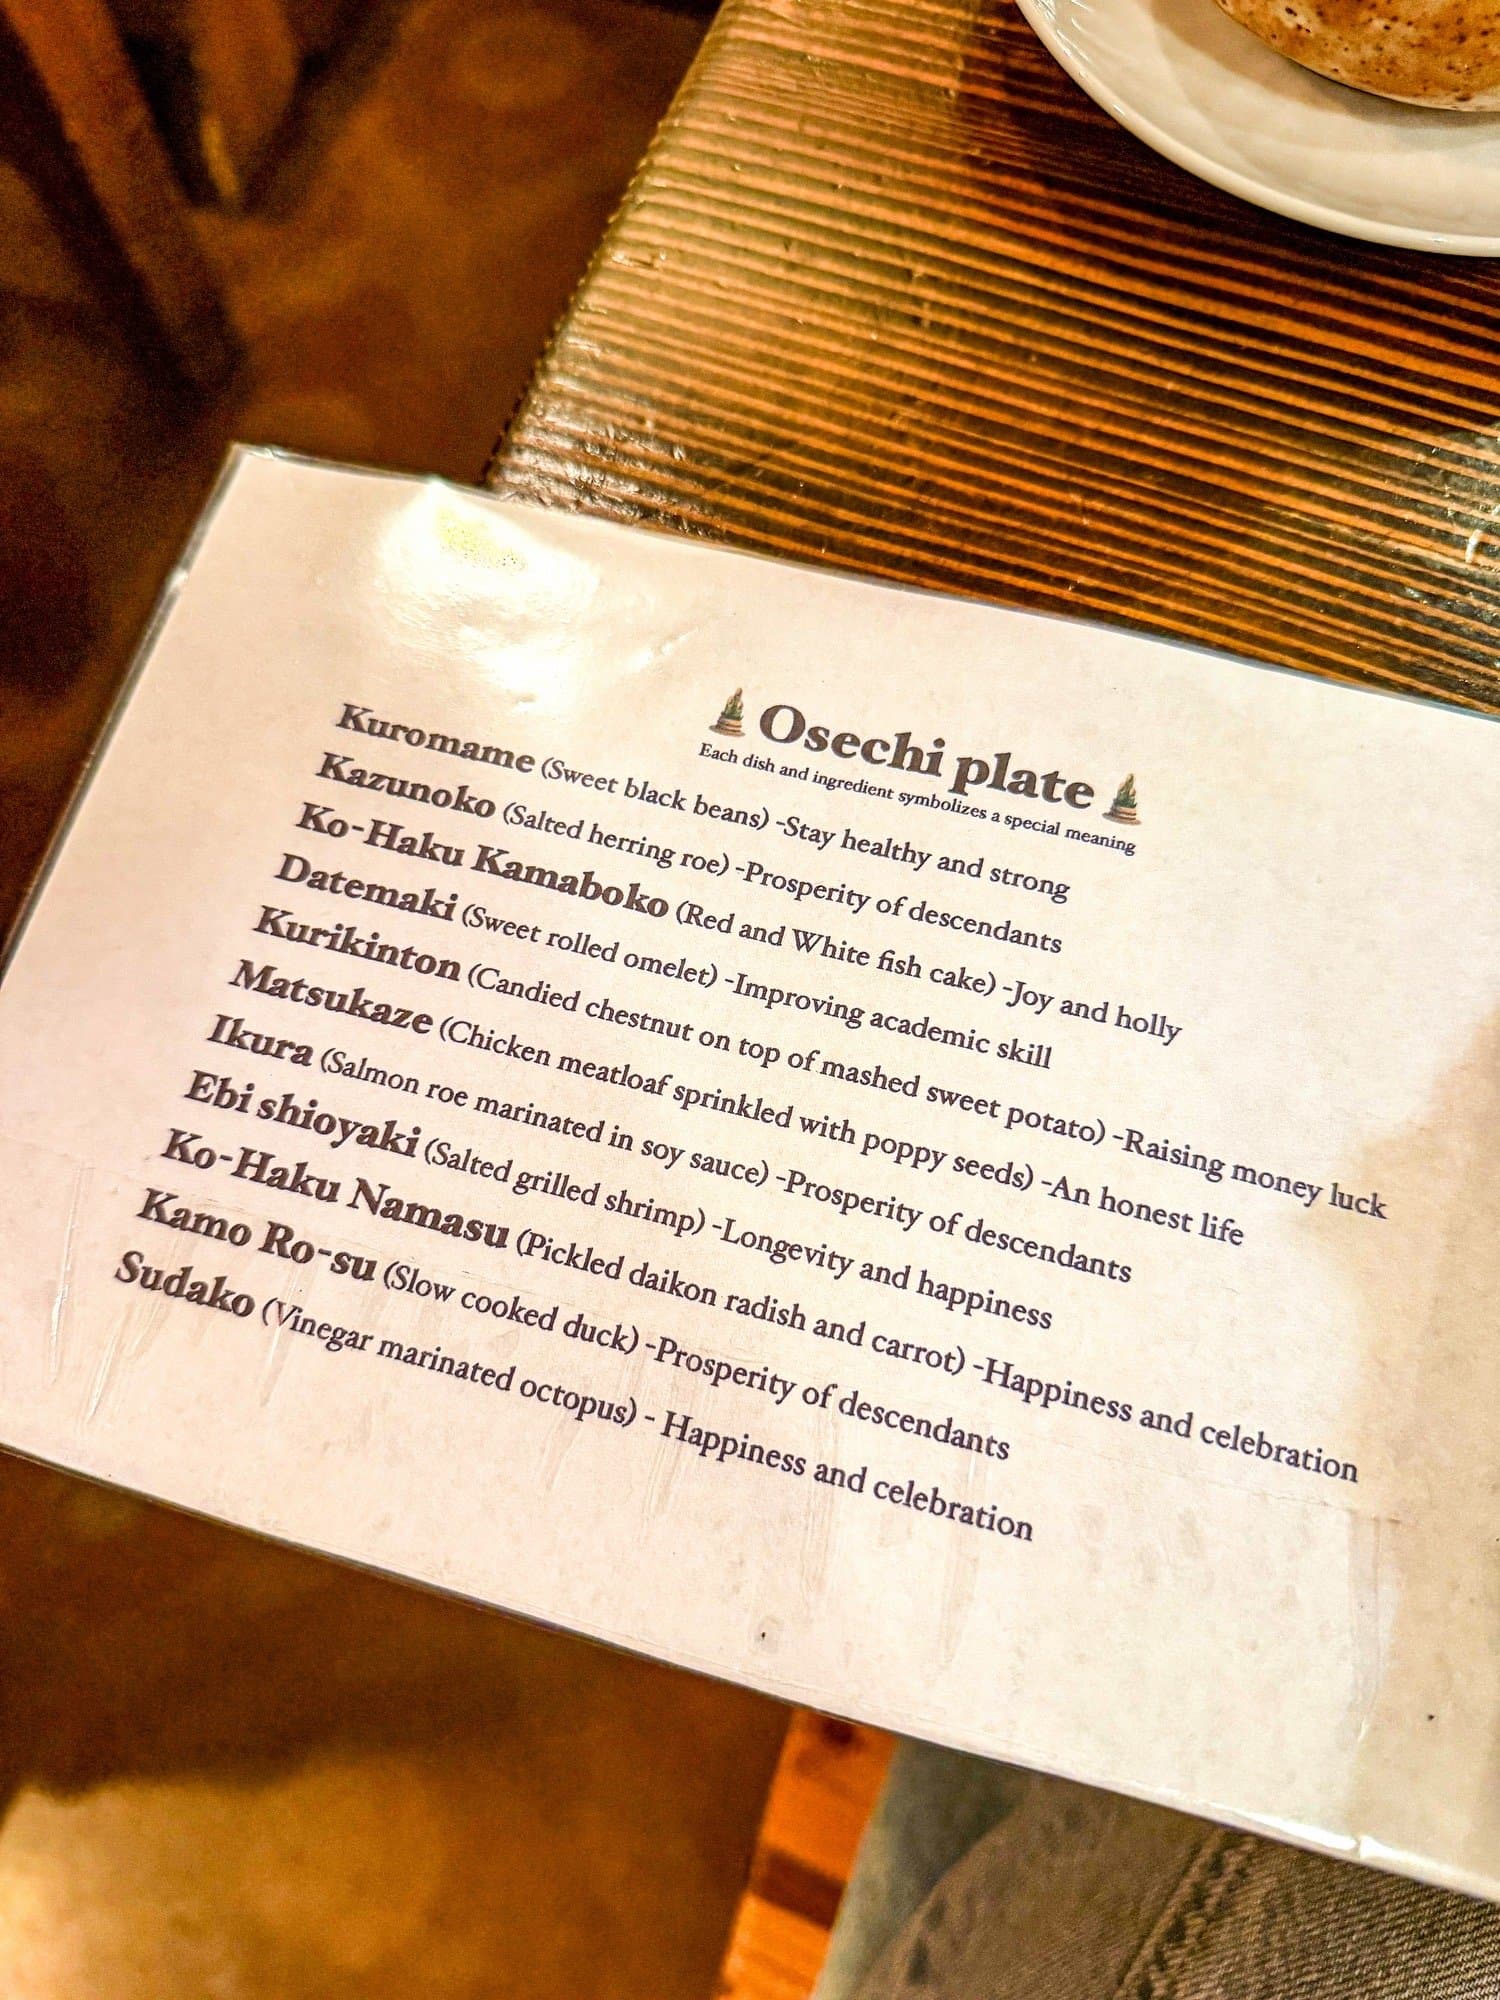 Osechi plate
Each dish and ingredient symbolizes a special meaning
Kuromame (Sweet black beans) -Stay healthy and strong
Kazunoko (Salted herring roe) -Prosperity of descendants
Ko-Haku Kamaboko (Red and White fish cake) -Joy and holly
Datemaki (Sweet rolled omelet) -Improving academic skill
Kurikinton (Candied chestnut on top of mashed sweet potato) -Raising money luck
Matsukaze (Chicken meatloaf sprinkled with poppy seeds) -An honest life
Ikura (Salmon roe marinated in soy sauce) -Prosperity of descendants
Ebi shioyaki (Salted grilled shrimp) -Longevity and happiness
Ko-Haku Namasu (Pickled daikon radish and carrot) -Happiness and celebration
Kamo Ro-su (Slow cooked duck) -Prosperity of descendants
Sudako (Vinegar marinated octopus) - Happiness and celebration